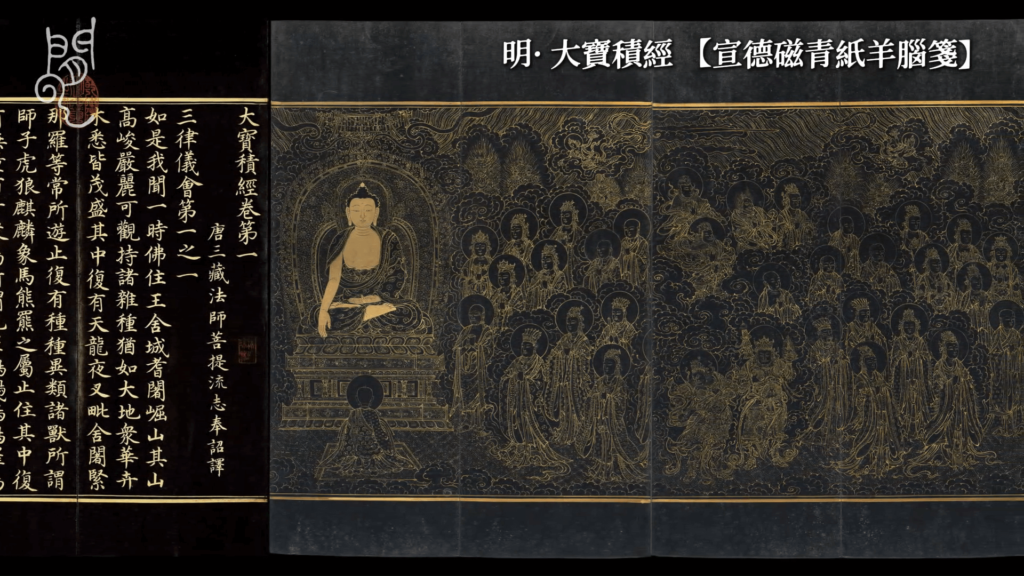 明·大寶積經【宣德磁青紙羊腦箋】
大寶積經卷第一
唐三藏法師菩提流志奉詔譯
三律儀會第一之一
如是我聞一時佛住王舍城耆闍崛山其山
高峻嚴麗可觀持諸雜種猶如大地衆華卉
木悉皆茂盛其中復有天龍夜叉毗舍闍緊
那羅等常所遊止復有種種異類諸獸所謂
師子虎狼麒麟象馬熊羆之屬止住其中復